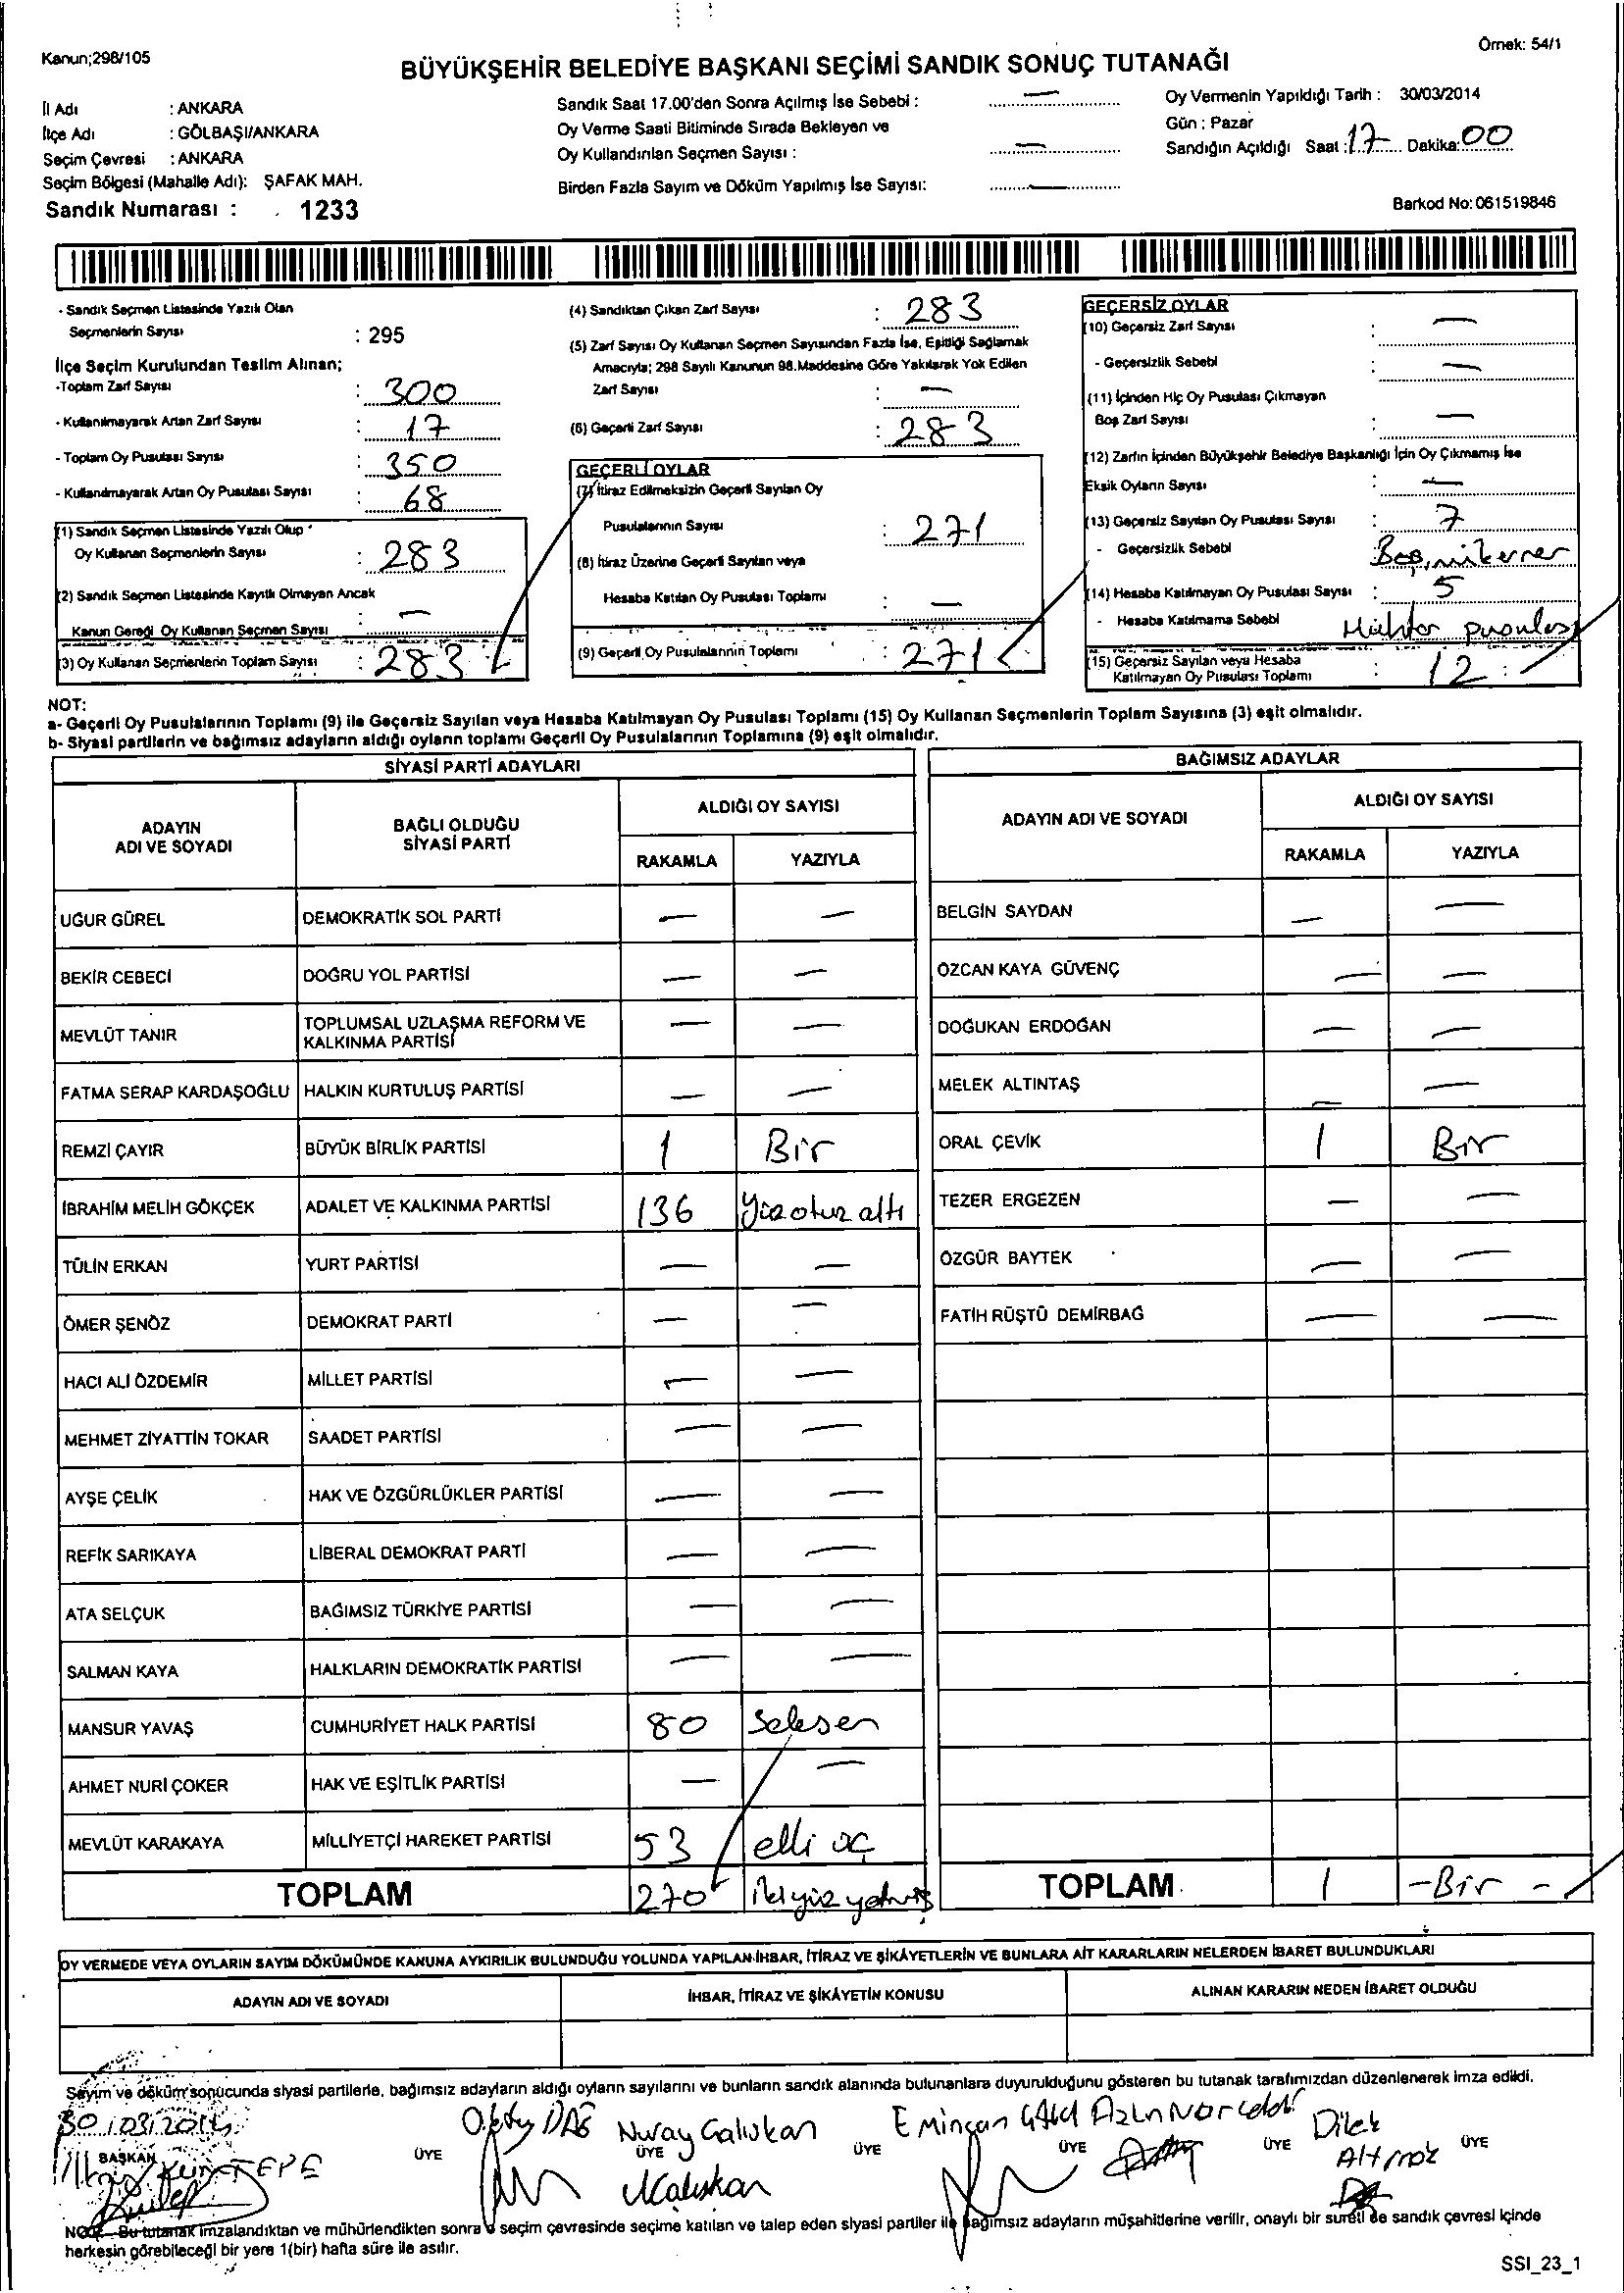 Kanun;298/105
Örnek: 54/1
BÜYÜKŞEHİR BELEDİYE BAŞKANI SEÇİMİ SANDIK SONUÇ TUTANAĞI
İl Adı : ANKARA
İlçe Adı : GÖLBAŞI/ANKARA
Seçim Çevresi : ANKARA
Seçim Bölgesi (Mahalle Adı): ŞAFAK MAH.
Sandık Numarası : 1233
Sandık Saat 17.00'den Sonra Açılmış İse Sebebi : —
Oy Verme Saati Bitiminde Sırada Bekleyen ve
Oy Kullandırılan Seçmen Sayısı : —
Birden Fazla Sayım ve Döküm Yapılmış İse Sayısı: —
Oy Vermenin Yapıldığı Tarih : 30/03/2014
Gün : Pazar
Sandığın Açıldığı Saat : 17 Dakika: 00
Barkod No: 061519846
- Sandık Seçmen Listesinde Yazılı Olan
Seçmenlerin Sayısı : 295
İlçe Seçim Kurulundan Teslim Alınan;
-Toplam Zarf Sayısı : 300
- Kullanılmayarak Artan Zarf Sayısı : 17
- Toplam Oy Pusulası Sayısı : 350
- Kullanılmayarak Artan Oy Pusulası Sayısı : 68
(1) Sandık Seçmen Listesinde Yazılı Olup
Oy Kullanan Seçmenlerin Sayısı : 283
(2) Sandık Seçmen Listesinde Kayıtlı Olmayan Ancak
Kanun Gereği Oy Kullanan Seçmen Sayısı : —
(3) Oy Kullanan Seçmenlerin Toplam Sayısı : 283
(4) Sandıktan Çıkan Zarf Sayısı : 283
(5) Zarf Sayısı Oy Kullanan Seçmen Sayısından Fazla İse, Eşitliği Sağlamak
Amacıyla; 298 Sayılı Kanunun 98.Maddesine Göre Yakılarak Yok Edilen
Zarf Sayısı : —
(6) Geçerli Zarf Sayısı : 283
GEÇERLİ OYLAR
(7) İtiraz Edilmeksizin Geçerli Sayılan Oy
Pusulalarının Sayısı : 271
(8) İtiraz Üzerine Geçerli Sayılan veya
Hesaba Katılan Oy Pusulası Toplamı : —
(9) Geçerli Oy Pusulalarının Toplamı : 271
GEÇERSİZ OYLAR
(10) Geçersiz Zarf Sayısı : —
- Geçersizlik Sebebi : —
(11) İçinden Hiç Oy Pusulası Çıkmayan
Boş Zarf Sayısı : —
(12) Zarfın İçinden Büyükşehir Belediye Başkanlığı İçin Oy Çıkmamış İse
Eksik Oyların Sayısı : —
(13) Geçersiz Sayılan Oy Pusulası Sayısı : 7
- Geçersizlik Sebebi Boş, mükerrer
(14) Hesaba Katılmayan Oy Pusulası Sayısı : 5
- Hesaba Katılmama Sebebi Muhtar pusulası
(15) Geçersiz Sayılan veya Hesaba
Katılmayan Oy Pusulası Toplamı : 12
NOT:
a- Geçerli Oy Pusulalarının Toplamı (9) ile Geçersiz Sayılan veya Hesaba Katılmayan Oy Pusulası Toplamı (15) Oy Kullanan Seçmenlerin Toplam Sayısına (3) eşit olmalıdır.
b- Siyasi partilerin ve bağımsız adayların aldığı oyların toplamı Geçerli Oy Pusulalarının Toplamına (9) eşit olmalıdır.
SİYASİ PARTİ ADAYLARI
ADAYIN ADI VE SOYADI
BAĞLI OLDUĞU SİYASİ PARTİ
ALDIĞI OY SAYISI
RAKAMLA YAZIYLA
UĞUR GÜREL DEMOKRATİK SOL PARTİ — —
BEKİR CEBECİ DOĞRU YOL PARTİSİ — —
MEVLÜT TANIR TOPLUMSAL UZLAŞMA REFORM VE KALKINMA PARTİSİ — —
FATMA SERAP KARDAŞOĞLU HALKIN KURTULUŞ PARTİSİ — —
REMZİ ÇAYIR BÜYÜK BİRLİK PARTİSİ 1 Bir
İBRAHİM MELİH GÖKÇEK ADALET VE KALKINMA PARTİSİ 136 Yüzotuz altı
TÜLİN ERKAN YURT PARTİSİ — —
ÖMER ŞENÖZ DEMOKRAT PARTİ — —
HACI ALİ ÖZDEMİR MİLLET PARTİSİ — —
MEHMET ZİYATTİN TOKAR SAADET PARTİSİ — —
AYŞE ÇELİK HAK VE ÖZGÜRLÜKLER PARTİSİ — —
REFİK SARIKAYA LİBERAL DEMOKRAT PARTİ — —
ATA SELÇUK BAĞIMSIZ TÜRKİYE PARTİSİ — —
SALMAN KAYA HALKLARIN DEMOKRATİK PARTİSİ — —
MANSUR YAVAŞ CUMHURİYET HALK PARTİSİ 80 Seksen
AHMET NURİ ÇOKER HAK VE EŞİTLİK PARTİSİ — —
MEVLÜT KARAKAYA MİLLİYETÇİ HAREKET PARTİSİ 53 elli üç
TOPLAM 270 ikiyüz yetmiş
BAĞIMSIZ ADAYLAR
ADAYIN ADI VE SOYADI
ALDIĞI OY SAYISI
RAKAMLA YAZIYLA
BELGİN SAYDAN — —
ÖZCAN KAYA GÜVENÇ — —
DOĞUKAN ERDOĞAN — —
MELEK ALTINTAŞ — —
ORAL ÇEVİK 1 Bir
TEZER ERGEZEN — —
ÖZGÜR BAYTEK — —
FATİH RÜŞTÜ DEMİRBAĞ — —
TOPLAM 1 -Bir -
OY VERMEDE VEYA OYLARIN SAYIM DÖKÜMÜNDE KANUNA AYKIRILIK BULUNDUĞU YOLUNDA YAPILAN İHBAR, İTİRAZ VE ŞİKÂYETLERİN VE BUNLARA AİT KARARLARIN NELERDEN İBARET BULUNDUKLARI
ADAYIN ADI VE SOYADI
İHBAR, İTİRAZ VE ŞİKÂYETİN KONUSU
ALINAN KARARIN NEDEN İBARET OLDUĞU
Sayım ve döküm sonucunda siyasi partilerle, bağımsız adayların aldığı oyların sayılarını ve bunların sandık alanında bulunanlara duyurulduğunu gösteren bu tutanak tarafımızdan düzenlenerek imza edildi.
30/03/2014
BAŞKAN
Oktay DAĞ
ÜYE
Nuray Çalışkan
ÜYE
ÜYE
ÜYE
ÜYE
Dilek
ÜYE
NOT: Bu tutanak imzalandıktan ve mühürlendikten sonra o seçim çevresinde seçime katılan ve talep eden siyasi partiler ile bağımsız adayların müşahitlerine verilir, onaylı bir sureti de sandık çevresi içinde
herkesin görebileceği bir yere 1(bir) hafta süre ile asılır.
SSI_23_1